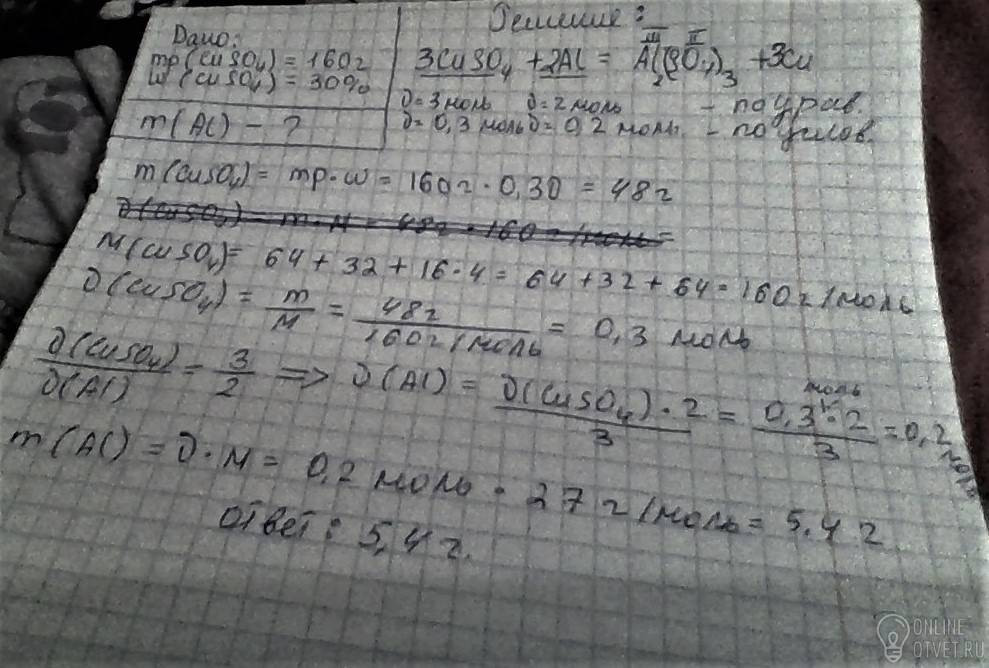 Дано:
mр(CuSO₄) = 160г
w(CuSO₄) = 30%
m(Al) - ?
Решение:
III II
3CuSO₄ + 2Al = Al₂(SO₄)₃ + 3Cu
∂=3моль ∂=2моль - по урав.
∂=0,3 моль ∂=0,2 моль - по услов.
m(CuSO₄) = mр·w = 160г · 0,30 = 48г
∂(CuSO₄) = m·M = 48г · 160г/моль =
M(CuSO₄) = 64 + 32 + 16·4 = 64 + 32 + 64 = 160г/моль
∂(CuSO₄) = m/M = 48г/160г/моль = 0,3 моль
∂(CuSO₄)/∂(Al) = 3/2 => ∂(Al) = ∂(CuSO₄)·2/3 = 0,3 моль·2/3 = 0,2 моль
m(Al) = ∂·M = 0,2 моль · 27г/моль = 5,4г
Ответ: 5,4г.
ONLINE
OTVET.RU